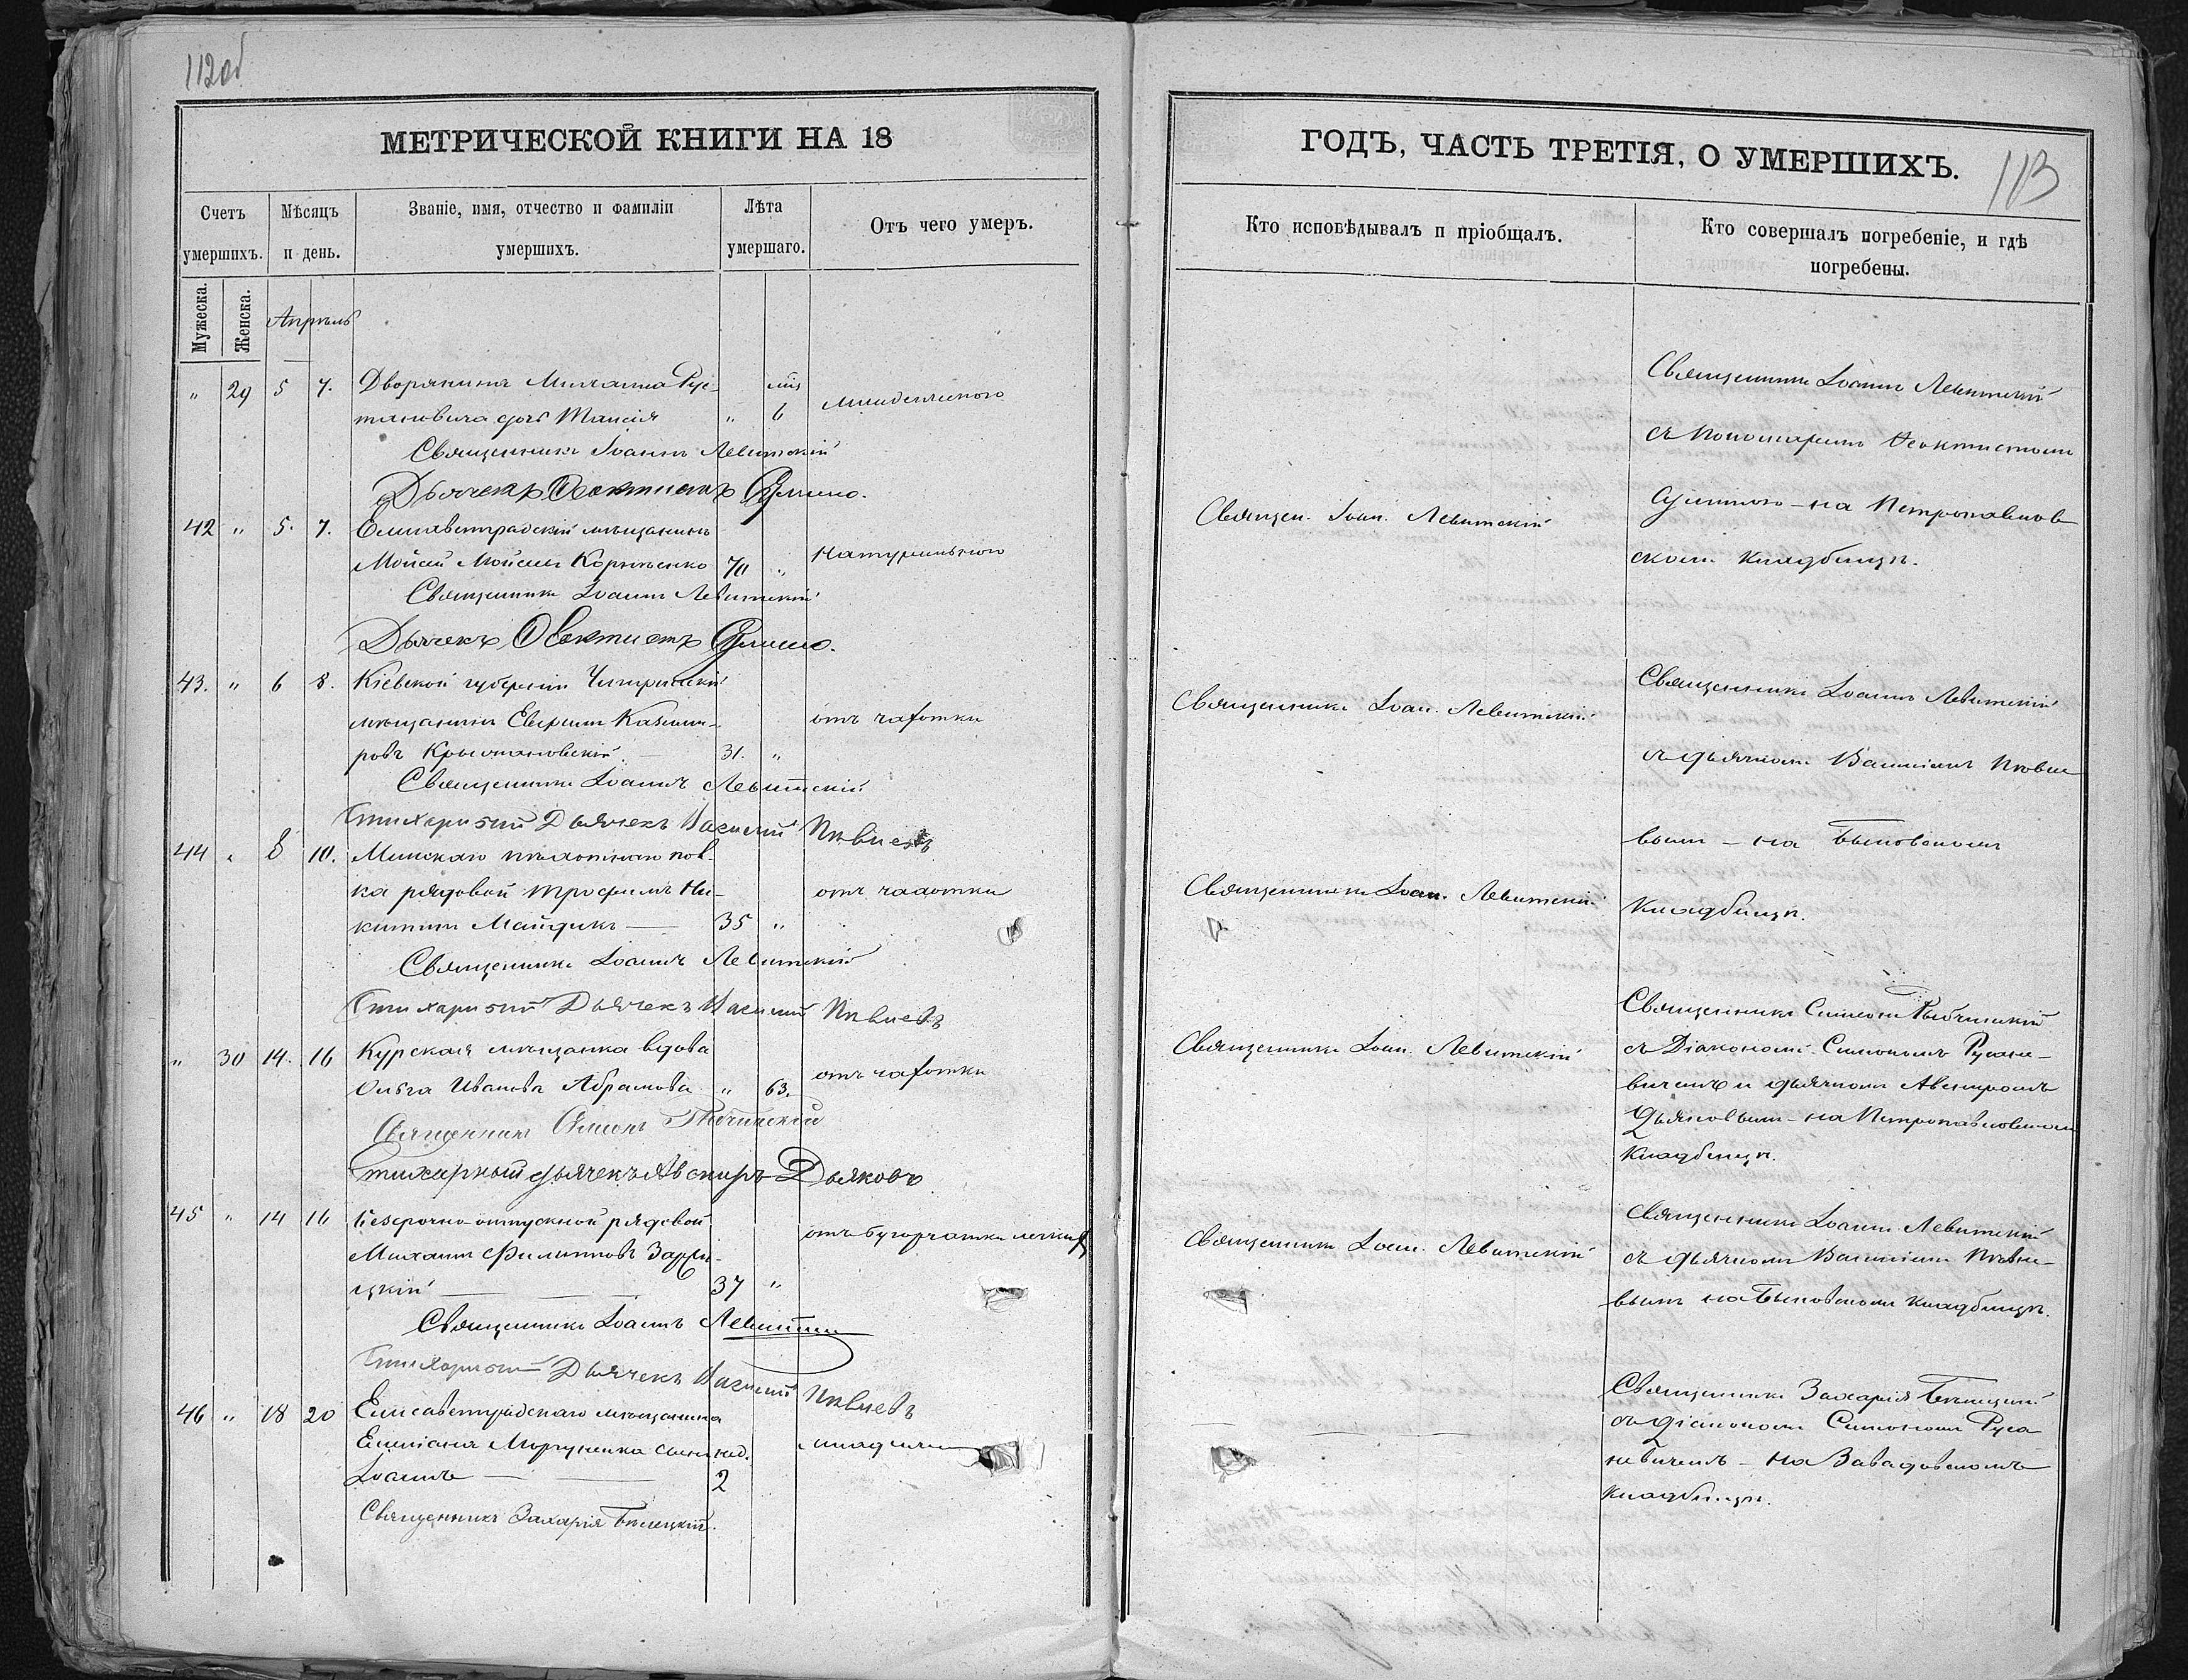 112об
МЕТРИЧЕСКОЙ КНИГИ НА 18
Счетъ умершихъ.
Мѣсяцъ и день.
Званіе, имя, отчество и фамиліи умершихъ.
Лѣта умершаго.
Отъ чего умеръ.
Мужеска.
Женска.
Апрѣль
" 29 5 7. Дворянина
дочь Таисія " 6 младенческою
Священникъ Іоаннъ Левитскій
Дьячекъ Ѳеоктистъ
42 " 5. 7. Елисаветградскій мѣщанинъ
Мойсей Мойсеевъ 70 " натуральною
Священникъ Іоаннъ Левитскій
Дьячекъ Ѳеоктистъ
43. " 6 8. Кіевской губерніи Чигиринскій
мѣщанинъ Казими- отъ чахотки
ровъ 31. "
Священникъ Іоаннъ Левитскій
Стихарный Дьячекъ Василій Пѣвневъ
44 " 8 10. Минскаго пѣхотнаго пол-
ка рядовой Трофимъ Ни- отъ чахотки
китинъ Майдикъ — 35 "
Священникъ Іоаннъ Левитскій
Стихарный Дьячекъ Василій Пѣвневъ
" 30 14. 16 Курская мѣщанка вдова
Ольга Иванова Абрамова " 63. отъ чахотки
Священникъ Симеонъ
Стихарный дьячекъ Авениръ Дьяковъ
45 " 14 16 Безсрочно-отпускной рядовой
Михаилъ Филиповъ отъ бугорчатки легкихъ
цкій — 37 "
Священникъ Іоаннъ Левитскій
Стихарный Дьячекъ Василій Пѣвневъ
46 " 18 20 Елисаветградскаго мѣщанина
сынъ нед.
Іоаннъ — 2
Священникъ Захарія Бѣлецкій.
113
ГОДЪ, ЧАСТЬ ТРЕТІЯ, О УМЕРШИХЪ.
Кто исповѣдывалъ и пріобщалъ.
Кто совершалъ погребеніе, и гдѣ погребены.
Священникъ Іоаннъ Левитскій
съ пономаремъ Ѳеоктистомъ
на Петропавлов-
скомъ кладбищѣ.
Священ. Іоан. Левитскій
Священникъ Іоан. Левитскій
Священникъ Іоаннъ Левитскій
съ дьячкомъ Василіемъ Пѣвне-
вымъ — на Быковскомъ
кладбищѣ.
Священникъ Іоан. Левитскій
Священникъ Іоан. Левитскій
Священникъ Симеонъ
съ Діакономъ Симономъ Русане-
вичемъ и дьячкомъ Авениромъ
Дьяковымъ — на Петропавловскомъ
кладбищѣ.
Священникъ Іоан. Левитскій
Священникъ Іоаннъ Левитскій
съ дьячкомъ Василіемъ Пѣвне-
вымъ на Быковскомъ кладбищѣ.
Священникъ Захарія Бѣлецкій
съ діакономъ Симономъ Руса-
невичемъ — на Завадовскомъ
кладбищѣ.